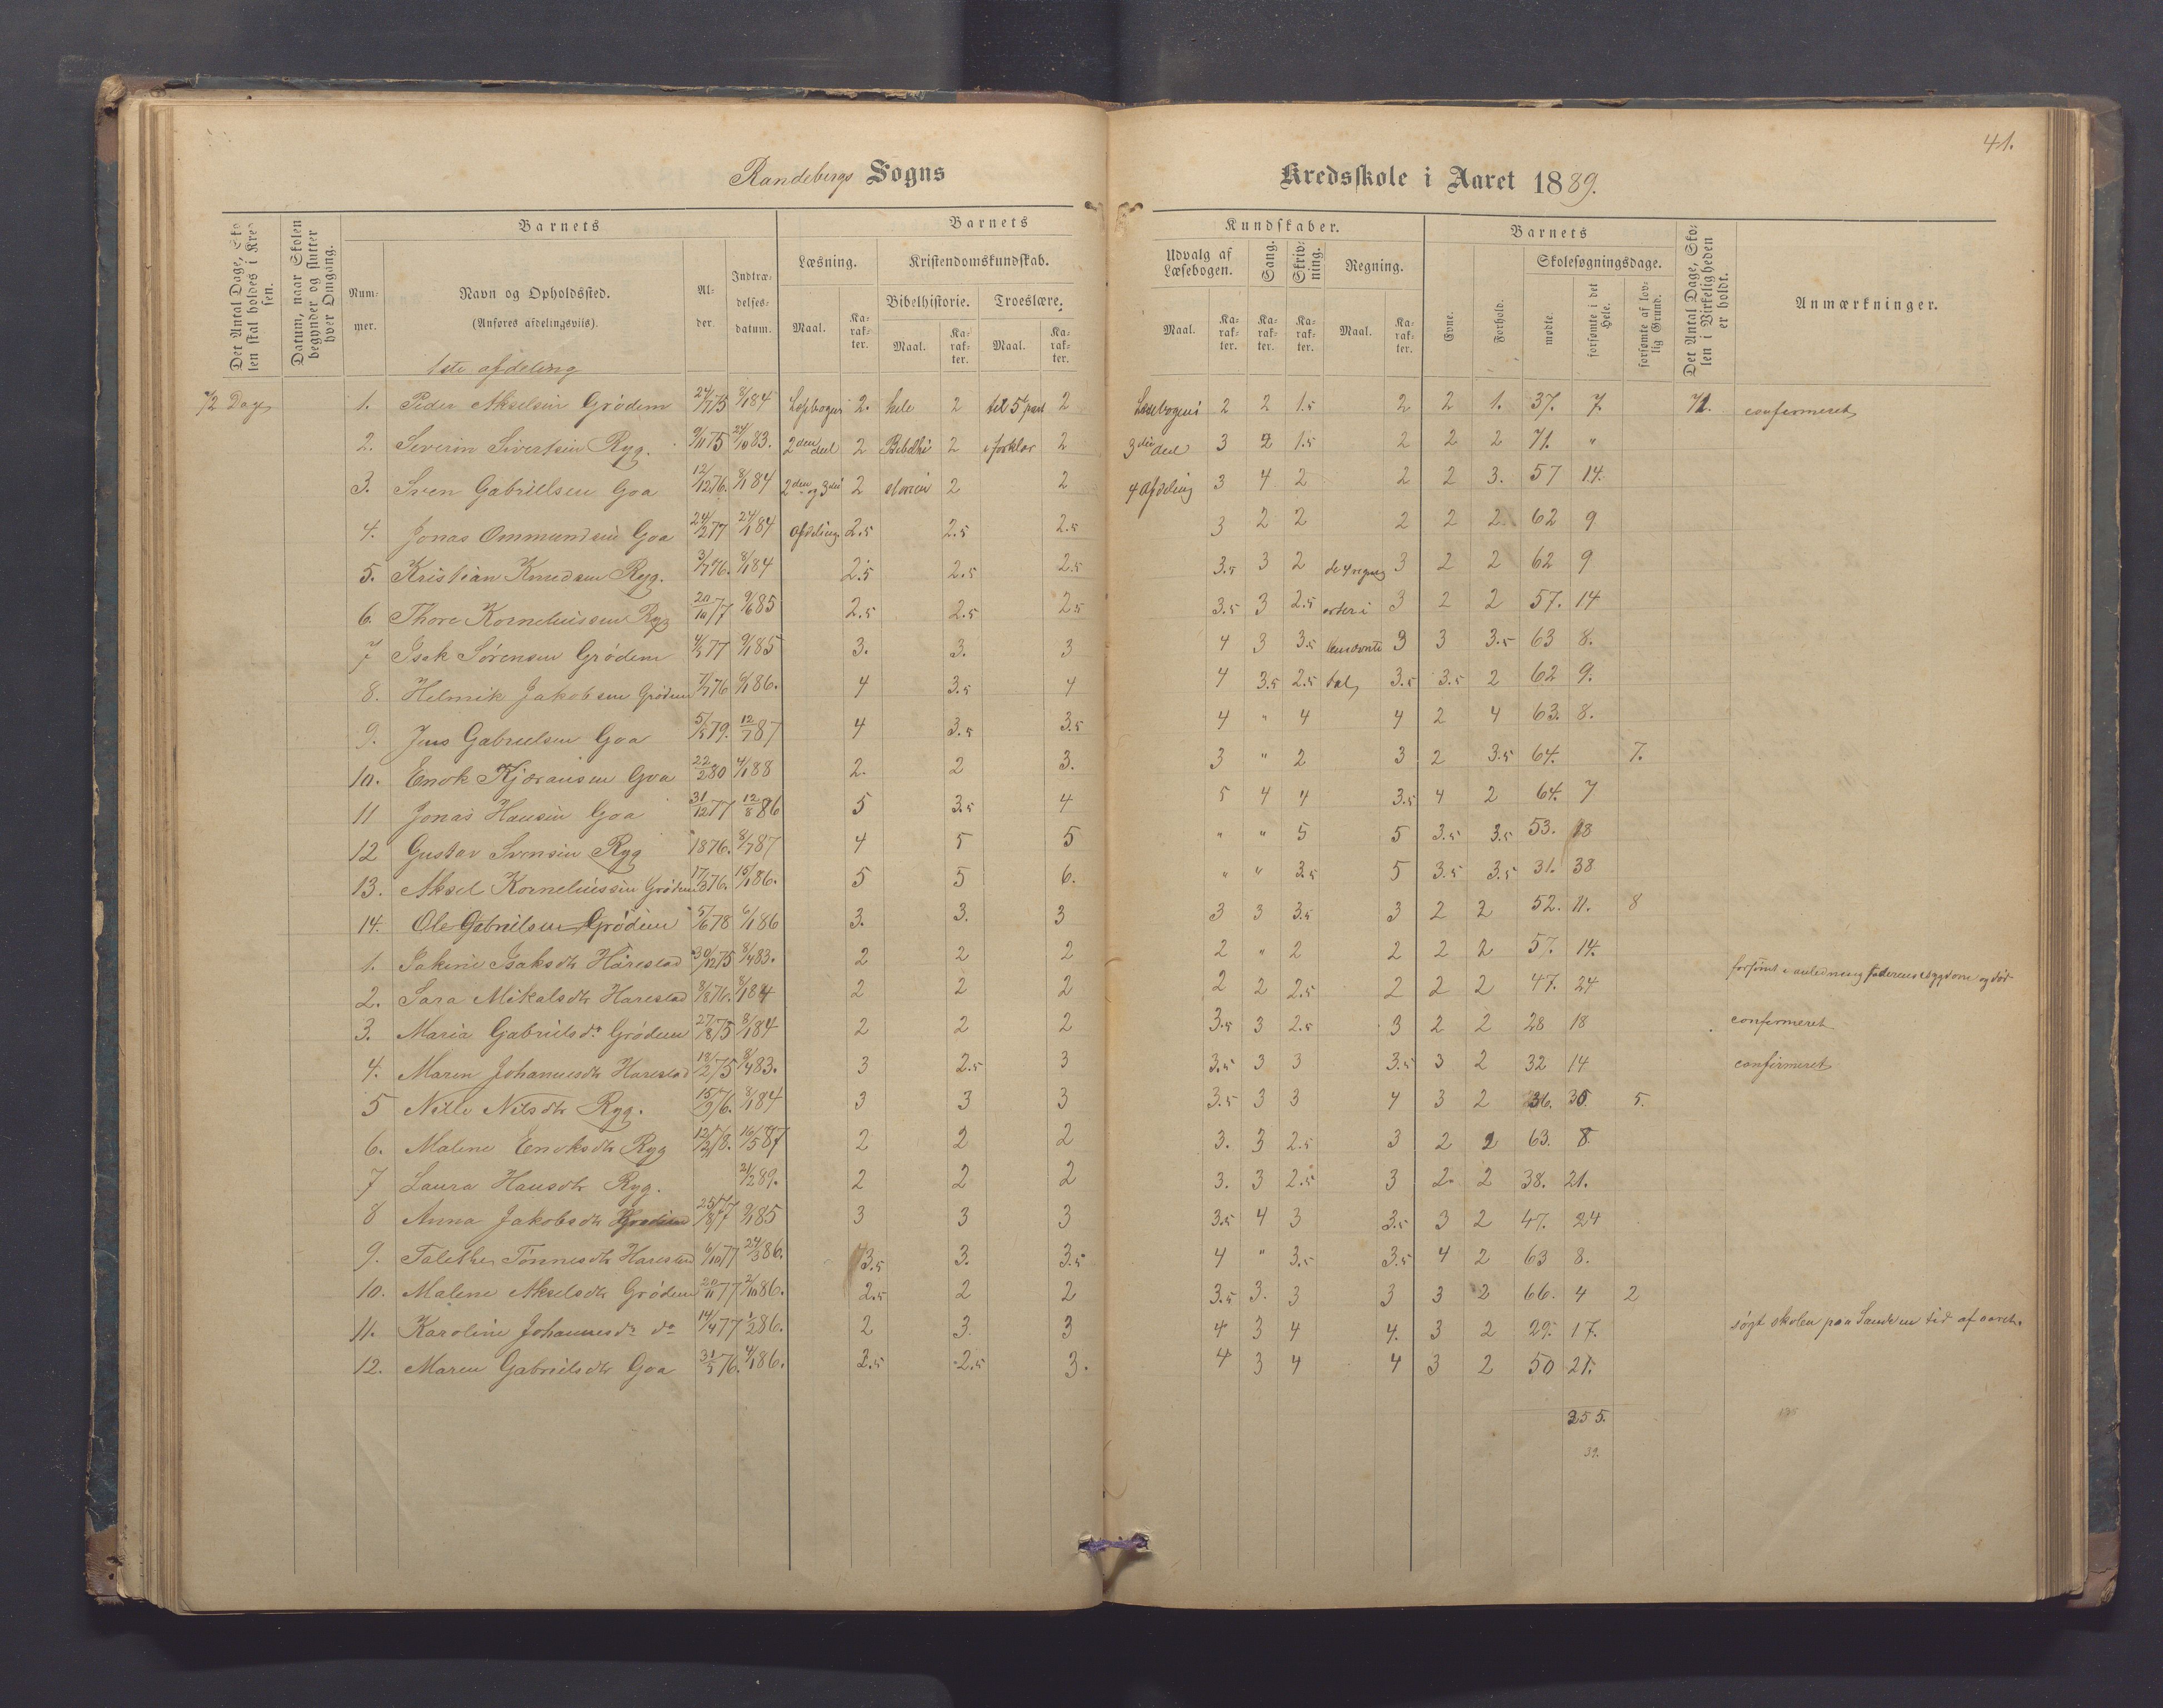 41.
Randebergs Sogns Kredsskole i Aaret 1889.
Det Antal Dage, Skolen skal holdes i Kredsen.
Datum, naar Skolen begynder og slutter hver Omgang.
Barnets
Nummer.
Navn og Opholdssted.
(Anføres afdelingsviis).
Alder.
Indtrædelsesdatum.
Barnets Kundskaber.
Læsning.
Maal.
Karakter.
Kristendomskundskab.
Bibelhistorie. Troeslære.
Maal. Karakter. Maal. Karakter.
Udvalg af Læsebogen.
Maal. Karakter.
Sang. Karakter.
Skrivning. Karakter.
Regning.
Maal. Karakter.
Barnets
Evne. Forhold.
Skolesøgningsdage.
mødte. forsømte i det Hele. forsømte af lovlig Grund.
Det Antal Dage, Skolen i Virkeligheden er holdt.
Anmærkninger.
1ste afdeling
72 Dage 1. Peder Akselsen Grødem 24/7 75 8/1 84 2. hele 2 til 5te part 2 Læsebogens 2 2 1.5 2 2 1. 37. 7. 71. confermeret
2. Severin Sivertsen Ryg. 9/11 75 24/10 83. 2den deel 2 Bibelhi 2 i forklar 2 3die deel 3 2 1.5 2 2 2 71. "
3. Sven Gabrielsen Goa 12/12 76. 8/1 84 2den og 3die 2 storien 2 2 4 Afdeling 3 4 2 2 2 3. 57 14.
4. Jonas Ommundsen Goa 24/2 77 24/1 84 Afdeling 2.5 2.5 2.5 3 2 2 2 2 2 62 9
5. Kristian Knudsen Ryg. 3/7 76. 8/1 84 2.5 2.5 2.5 3.5 3 2 de 4 regnings 3 2 2 62 9
6. Thore Korneliussen Ryg 20/10 77 9/6 85 2.5 2.5 2.5 3.5 3 2.5 arter i 3 2 2 57. 14
7 Isak Sørensen Grødem 4/5 77 9/1 85 3. 3. 3 4 3 3.5 benævnte 3 3 3.5 63 8.
8. Helmik Jakobsen Grødem 7/7 76 6/1 86. 4 3.5 4 4 3.5 2.5 tal 3.5 3.5 2 62 9.
9. Jens Gabrielsen Goa 5/5 79. 12/7 87 4 3.5 3.5 4 " 4 4 2 4 63. 8.
10. Enok Kjøransen Goa 22/2 80 4/1 88 2. 2 3. 3 " 2 3 2 3.5 64. 7.
11 Jonas Hansen Goa 31/12 77 12/8 86 5 3.5 4 5 4 4 3.5 4 2 64. 7
12 Gustav Svensen Ryg 1876. 8/7 87 4 5 5 " " 5 5 3.5 3.5 53. 18
13. Aksel Korneliussen Grødem 17/3 76. 15/1 86. 5 5 6. " " 3.5 5 3.5 3.5 31. 38
14. Ole Gabrielsen Grødem 5/6 78 6/1 86 3. 3. 3 3 3 3.5 3 2 2 52. 11. 8
1. Sakine Isaksdtr Harestad 30/12 75 8/4 83. 2 2 2 2 " 2 2 2 2 57. 14.
2. Sara Mikalsdtr Harestad 8/8 76. 8/1 84 2 2 2 2 2 2.5 2 2 2 47. 24 forsømt i anledning faderens sygdom og død
3. Maria Gabrielsdr Grødem 27/8 75 8/1 84 2 2 2 3.5 3 2.5 3 2 2 28 18 confermeret
4. Maren Johannesdtr Harestad 18/2 75 8/4 83. 3 2.5 3 3.5 3 3 3.5 3 2 32 14 confirmeret
5 Nille Nilsdtr Ryg. 15/3 76. 8/1 84 3 3 3 3.5 3 3 4 3 2 36. 30 5.
6. Malene Enoksdtr Ryg 12/2 78. 16/5 87 2 2 2 3. 3 2.5 3 2 2 63. 8
7 Laura Hansdtr Ryg. 21/2 89. 2 2 2 3. 3 2.5 3 2. 2 38. 21.
8 Anna Jakobsdtr Grødem 25/8 77 9/1 85 3 3 3 3.5 4 3 3.5 3 2 47. 24
9. Talethe Tønnesdtr Harestad 6/10 77 24/3 86. 3.5 3. 3.5 4 " 3.5 3.5 4 2 63 8.
10. Malene Akselsdtr Grødem 20/11 77 2/10 86. 2.5 2 2 3.5 3. 3 3 3 2 66. 4 2
11. Karoline Johannesdr do 14/4 77 1/2 86. 2 3 3 4 3 4 4. 3 2 29. 17. søgt skolen paa Sande en tid af aaret.
12. Maren Gabrielsdtr Goa 31/5 76. 4/1 86. 2.5 2.5 3. 4 3 4 4 3 2 50 21.
355.
39.